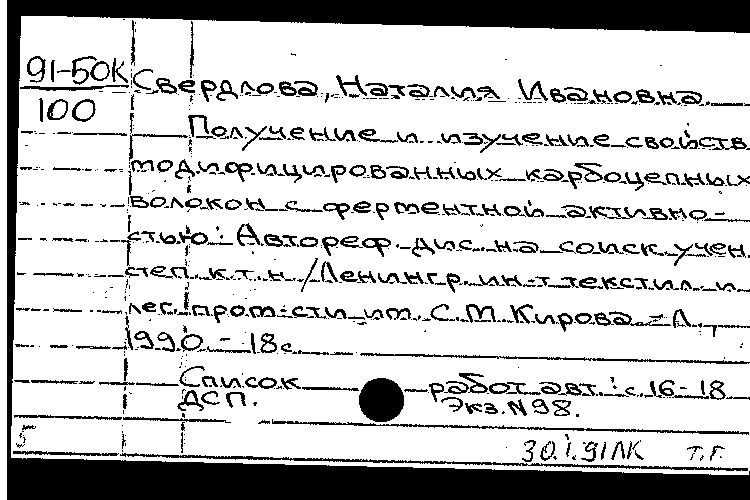 91-50К
100
Свердлова, Наталия Ивановна.
Получение и изучение свойств
модифицированных карбоцепных
волокон с ферментной активно-
стью: Автореф. дис. на соиск. учен.
степ. к.т.н. /Ленингр. ин-т текстил. и
лег. пром-сти им. С.М. Кирова. – Л.,
1990. – 18с.
Список работ авт.: с.16-18
ДСП. Экз. N98.
5
30.I.91ЛК Т.Г.